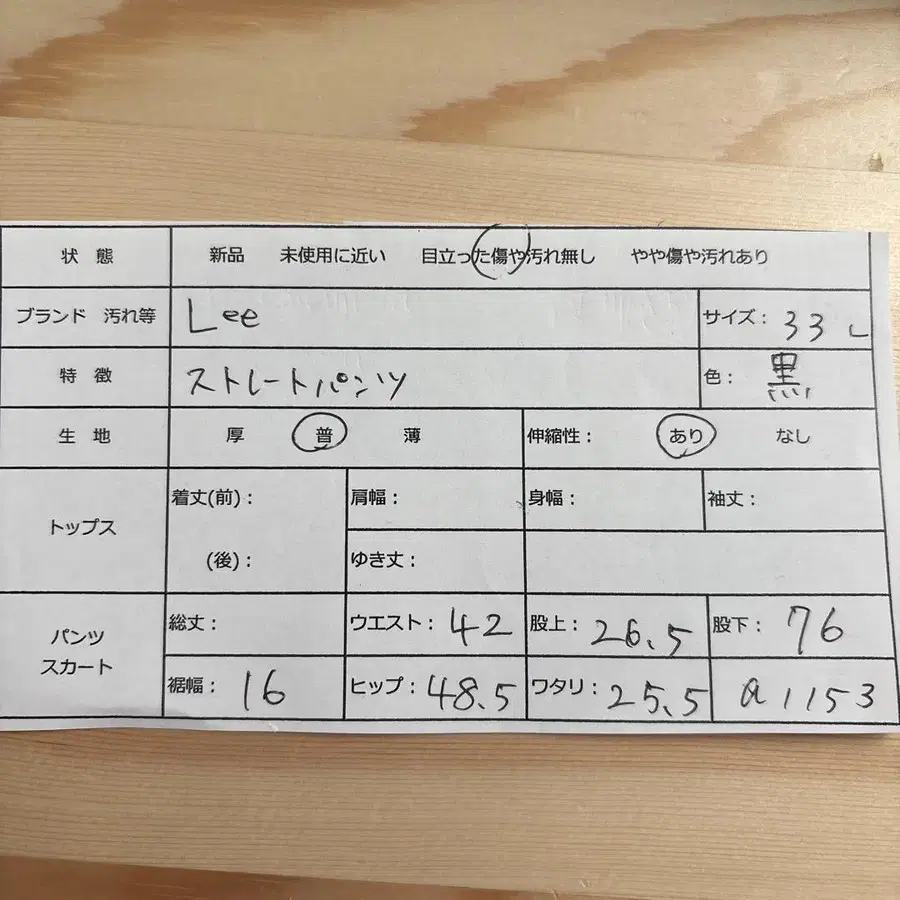 状 態 新品 未使用に近い 目立った傷や汚れ無し やや傷や汚れあり
ブランド 汚れ等 Lee サイズ: 33 L
特 徴 ストレートパンツ 色: 黒
生 地 厚 普 薄 伸縮性: あり なし
トップス 着丈(前): 肩幅: 身幅: 袖丈:
(後): ゆき丈:
パンツ スカート 総丈: ウエスト: 42 股上: 26.5 股下: 76
裾幅: 16 ヒップ: 48.5 ワタリ: 25.5 a1153